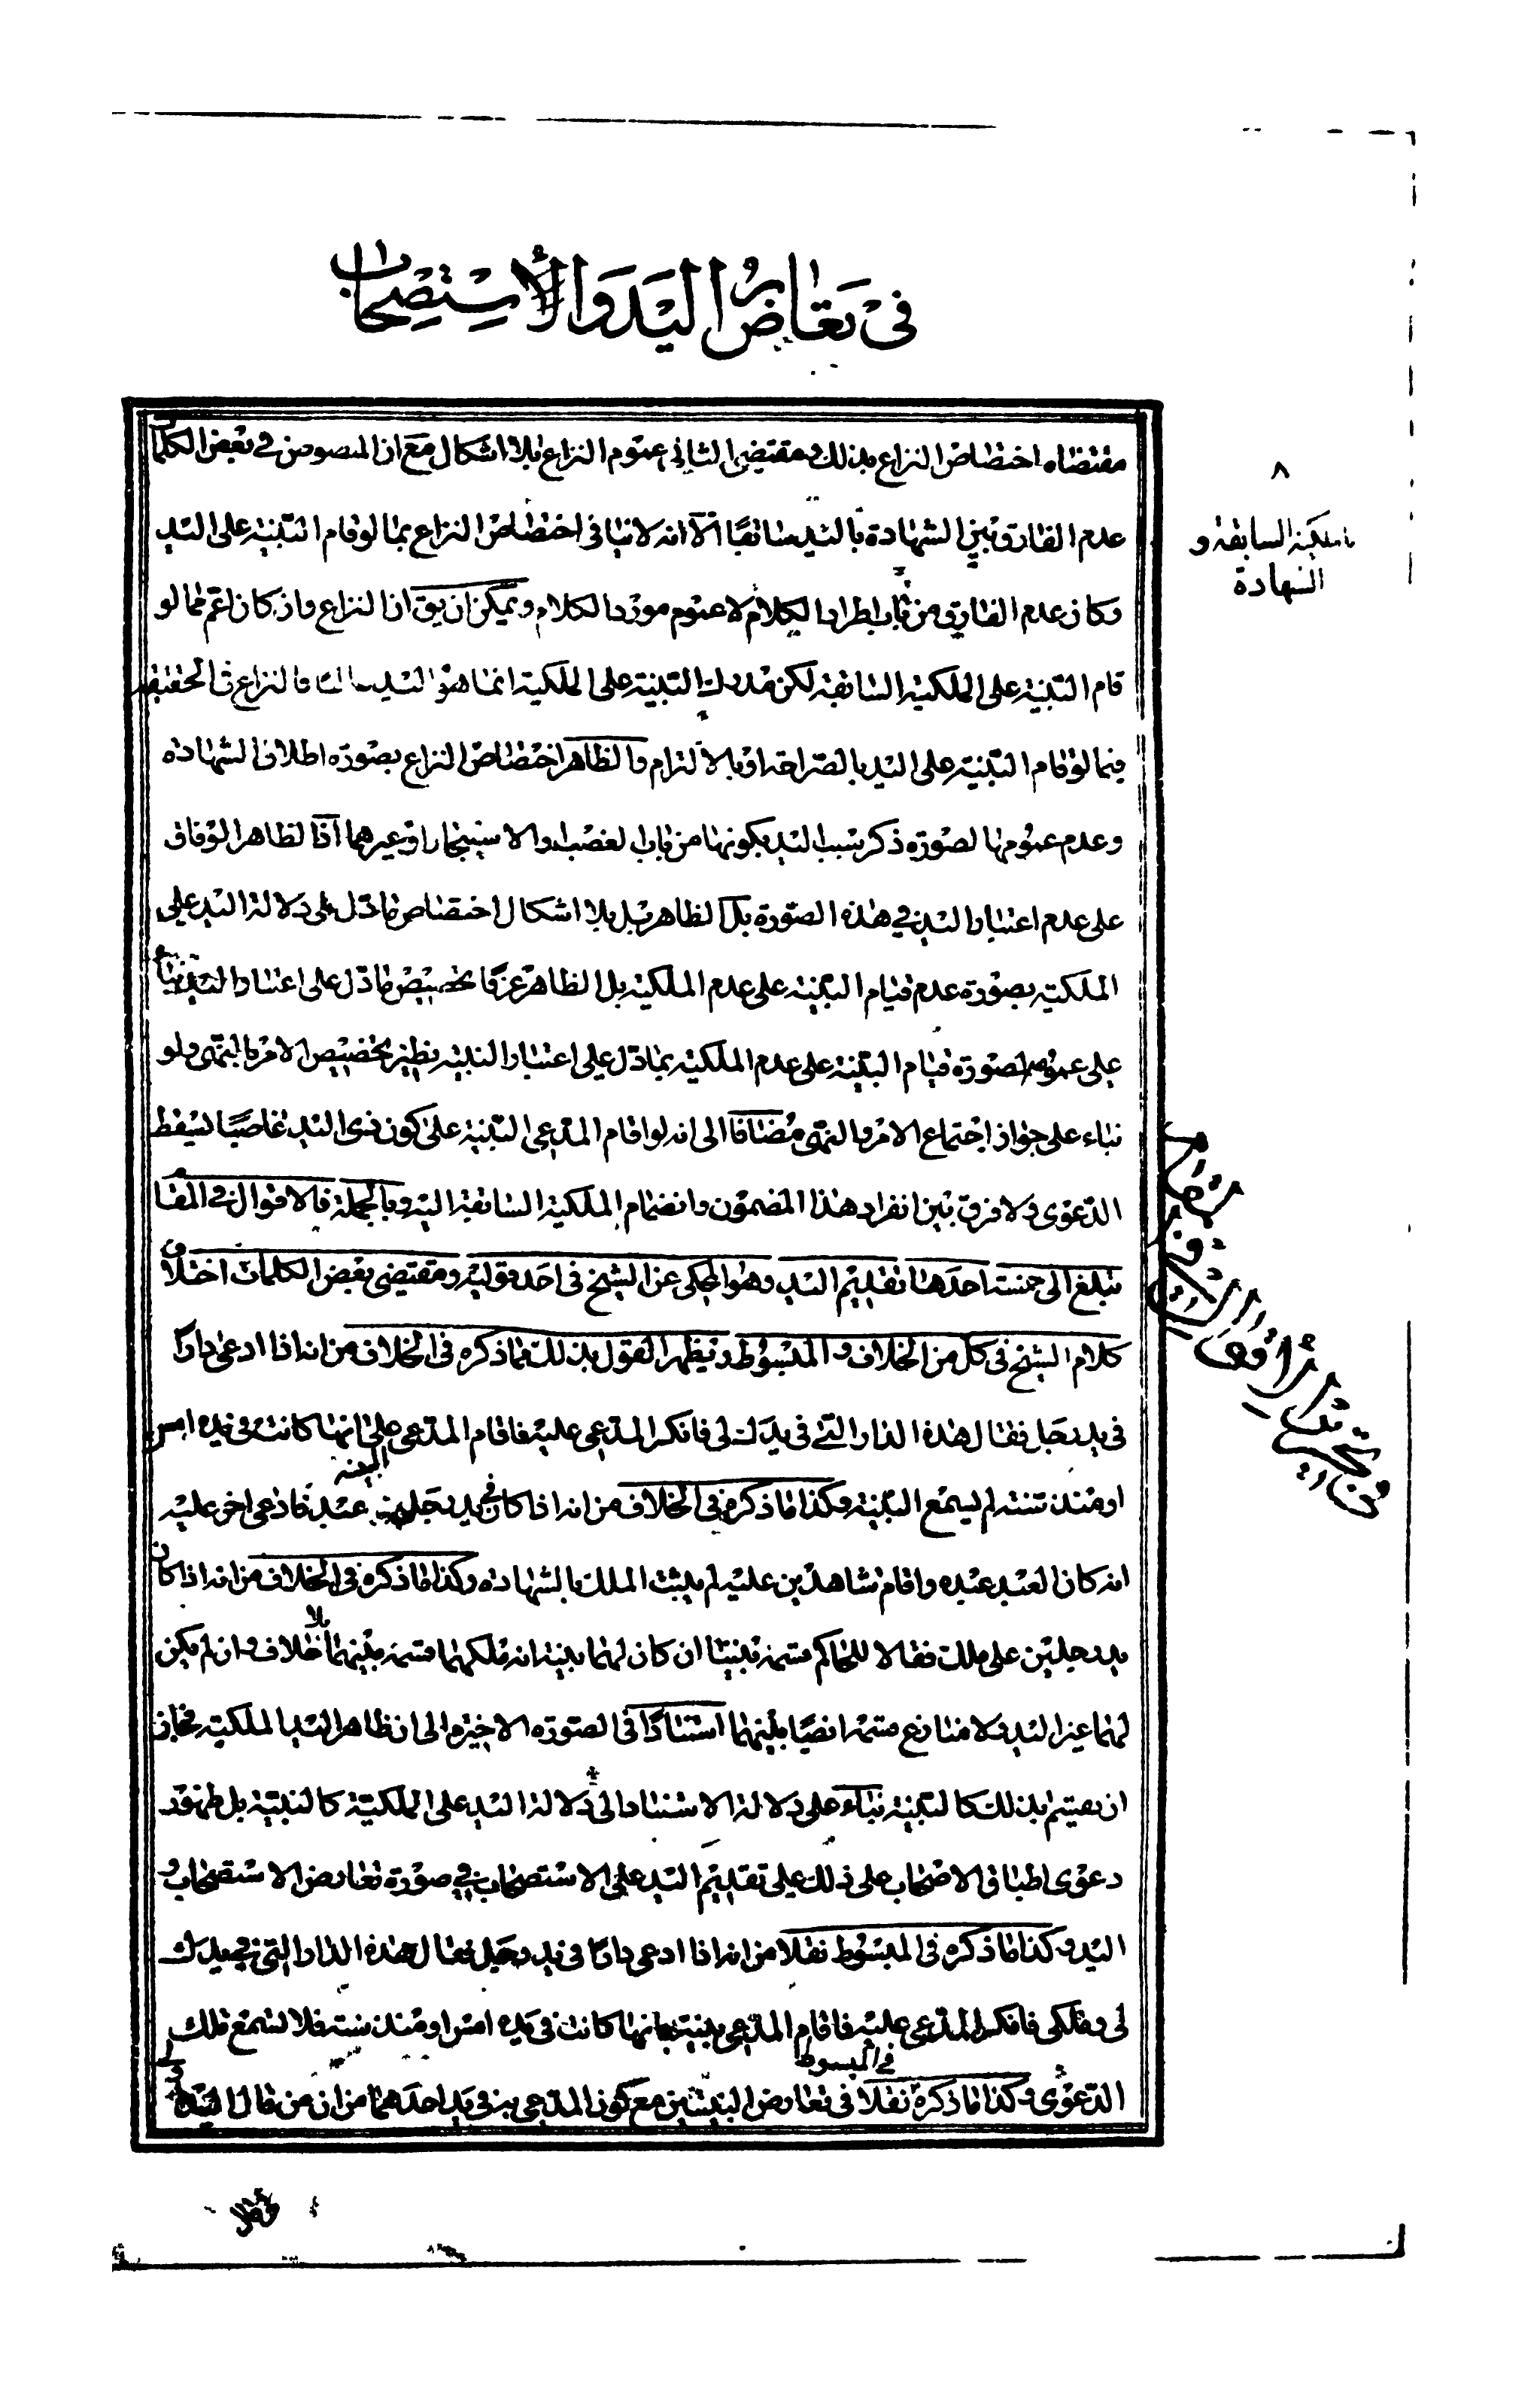 في تعارض اليد والاستصحاب
مقتضاه اختصاص النزاع بذلك ومقتضى الثاني عموم النزاع بلا اشكال مع ان المنصوص في بعض الكلمات
عدم الفارق بين الشهادة باليد سابقا الا انه لا ينافى اختصاص النزاع بما لو قام البينة على اليد
وكان عدم الفارق من باب اطراد الكلام لا عموم مورد الكلام ويمكن ان يق ان النزاع وان كان اعم مما لو
قام البينة على الملكية السابقة لكن مدرك البينة على الملكية انما هو اليد فالنزاع في الحقيقة
فيما لو قام البينة على اليد بالصراحة او بالالتزام والظاهر اختصاص النزاع بصورة اطلاق الشهادة
وعدم عمومها لصورة ذكر سبب اليد بكونها من باب الغصب والاستيجار او غيرهما اذ الظاهر الوفاق
على عدم اعتبار اليد في هذه الصورة بل الظاهر بل بلا اشكال اختصاص ما دل على دلالة اليد على
الملكية بصورة عدم قيام البينة على عدم الملكية بل الظاهر عرفا تخصيص ما دل على اعتبار اليد بناء
على عمومه لصورة قيام البينة على عدم الملكية بما دل على اعتبار البينة نظير تخصيص الامر بالنهى ولو
بناء على جواز اجتماع الامر والنهى مضافا الى انه لو اقام المدعى البينة على كون ذى اليد غاصبا لسقط
الدعوى ولا فرق بين انفراد هذا المضمون وانضمام الملكية السابقة اليه وبالجملة فالاقوال في المقام
تبلغ الى خمسة احدها تقديم اليد وهو المحكى عن الشيخ في احد قوليه ومقتضى بعض الكلمات اختلاف
كلام الشيخ في كل من الخلاف والمبسوط ويظهر القول بذلك مما ذكره في الخلاف من انه اذا ادعى دارا
في يد رجل فقال هذه الدار التي في يدك لى فانكر المدعى عليه فاقام المدعى البينة على انها كانت في يده امس
او منذ سنة لم يسمع البينة وكذا ما ذكره في الخلاف من انه اذا كان في يد رجل عبد فادعى اخر عليه
انه كان العبد عبده واقام شاهدين عليه لم يثبت الملك بالشهادة وكذا ما ذكره في الخلاف من انه اذا كان
يد رجلين على ملك فقالا للحاكم قسمه بيننا ان كان لهما بينة انه ملكهما قسمه بينهما بلا خلاف وان لم يكن
لهما غير اليد ولا منازع قسمه ايضا بينهما استنادا في الصورة الاخيرة الى ان ظاهر اليد الملكية فجاز
ان يقسم بذلك كالبينة بناء على دلالة الاستناد الى دلالة اليد على الملكية كالبينة بل
دعوى اطباق الاصحاب على ذلك على تقديم اليد على الاستصحاب في صورة تعارض الاستصحاب و
اليد وكذا ما ذكره في المبسوط نقلا من انه اذا ادعى دارا في يد رجل فقال هذه الدار التي في يدك
لى وملكى فانكر المدعى عليه فاقام المدعى بينة بانها كانت في يده امس او منذ سنة فلا تسمع تلك
الدعوى وكذا ما ذكره في المبسوط نقلا في تعارض البينتين مع كون المدعى به في يد احدهما من ان من قال اليد
٨
بالملكية السابقة و
الشهادة